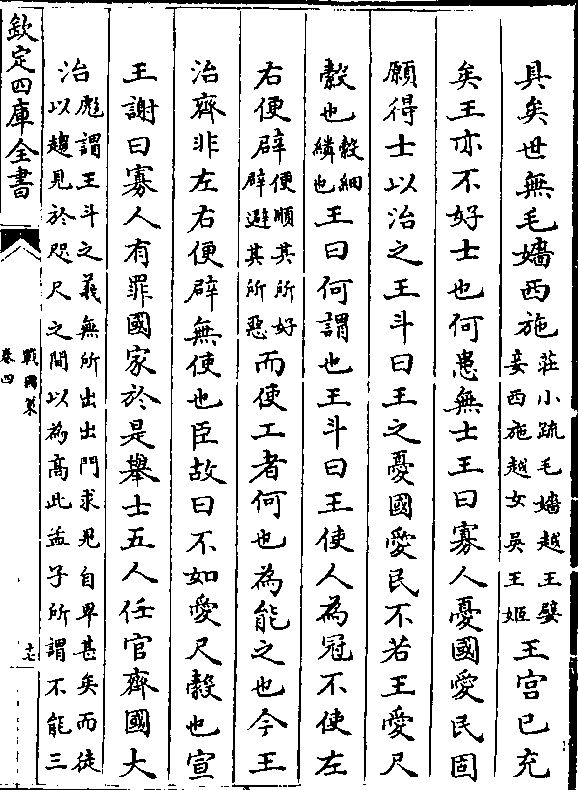 具矣世無毛嬙西施莊小疏毛嬙越王嬖妾西施越女吳王姬王宫已充
矣王亦不好士也何患無士王曰寡人憂國愛民固
願得士以治之王斗曰王之憂國愛民不若王愛尺
縠也縠細繐也王曰何謂也王斗曰王使人為冠不使左
右便辟便順其所好辟避其所惡而使工者何也為能之也今王
治齊非左右便辟無使也臣故曰不如愛尺縠也宣
王謝曰寡人有罪國家於是舉士五人任官齊國大
治彪謂王斗之義無所出出門求見自卑甚矣而徒以趨見於咫尺之間以為髙此孟子所謂不能三
欽定四庫全書
戰國策
卷四
十七